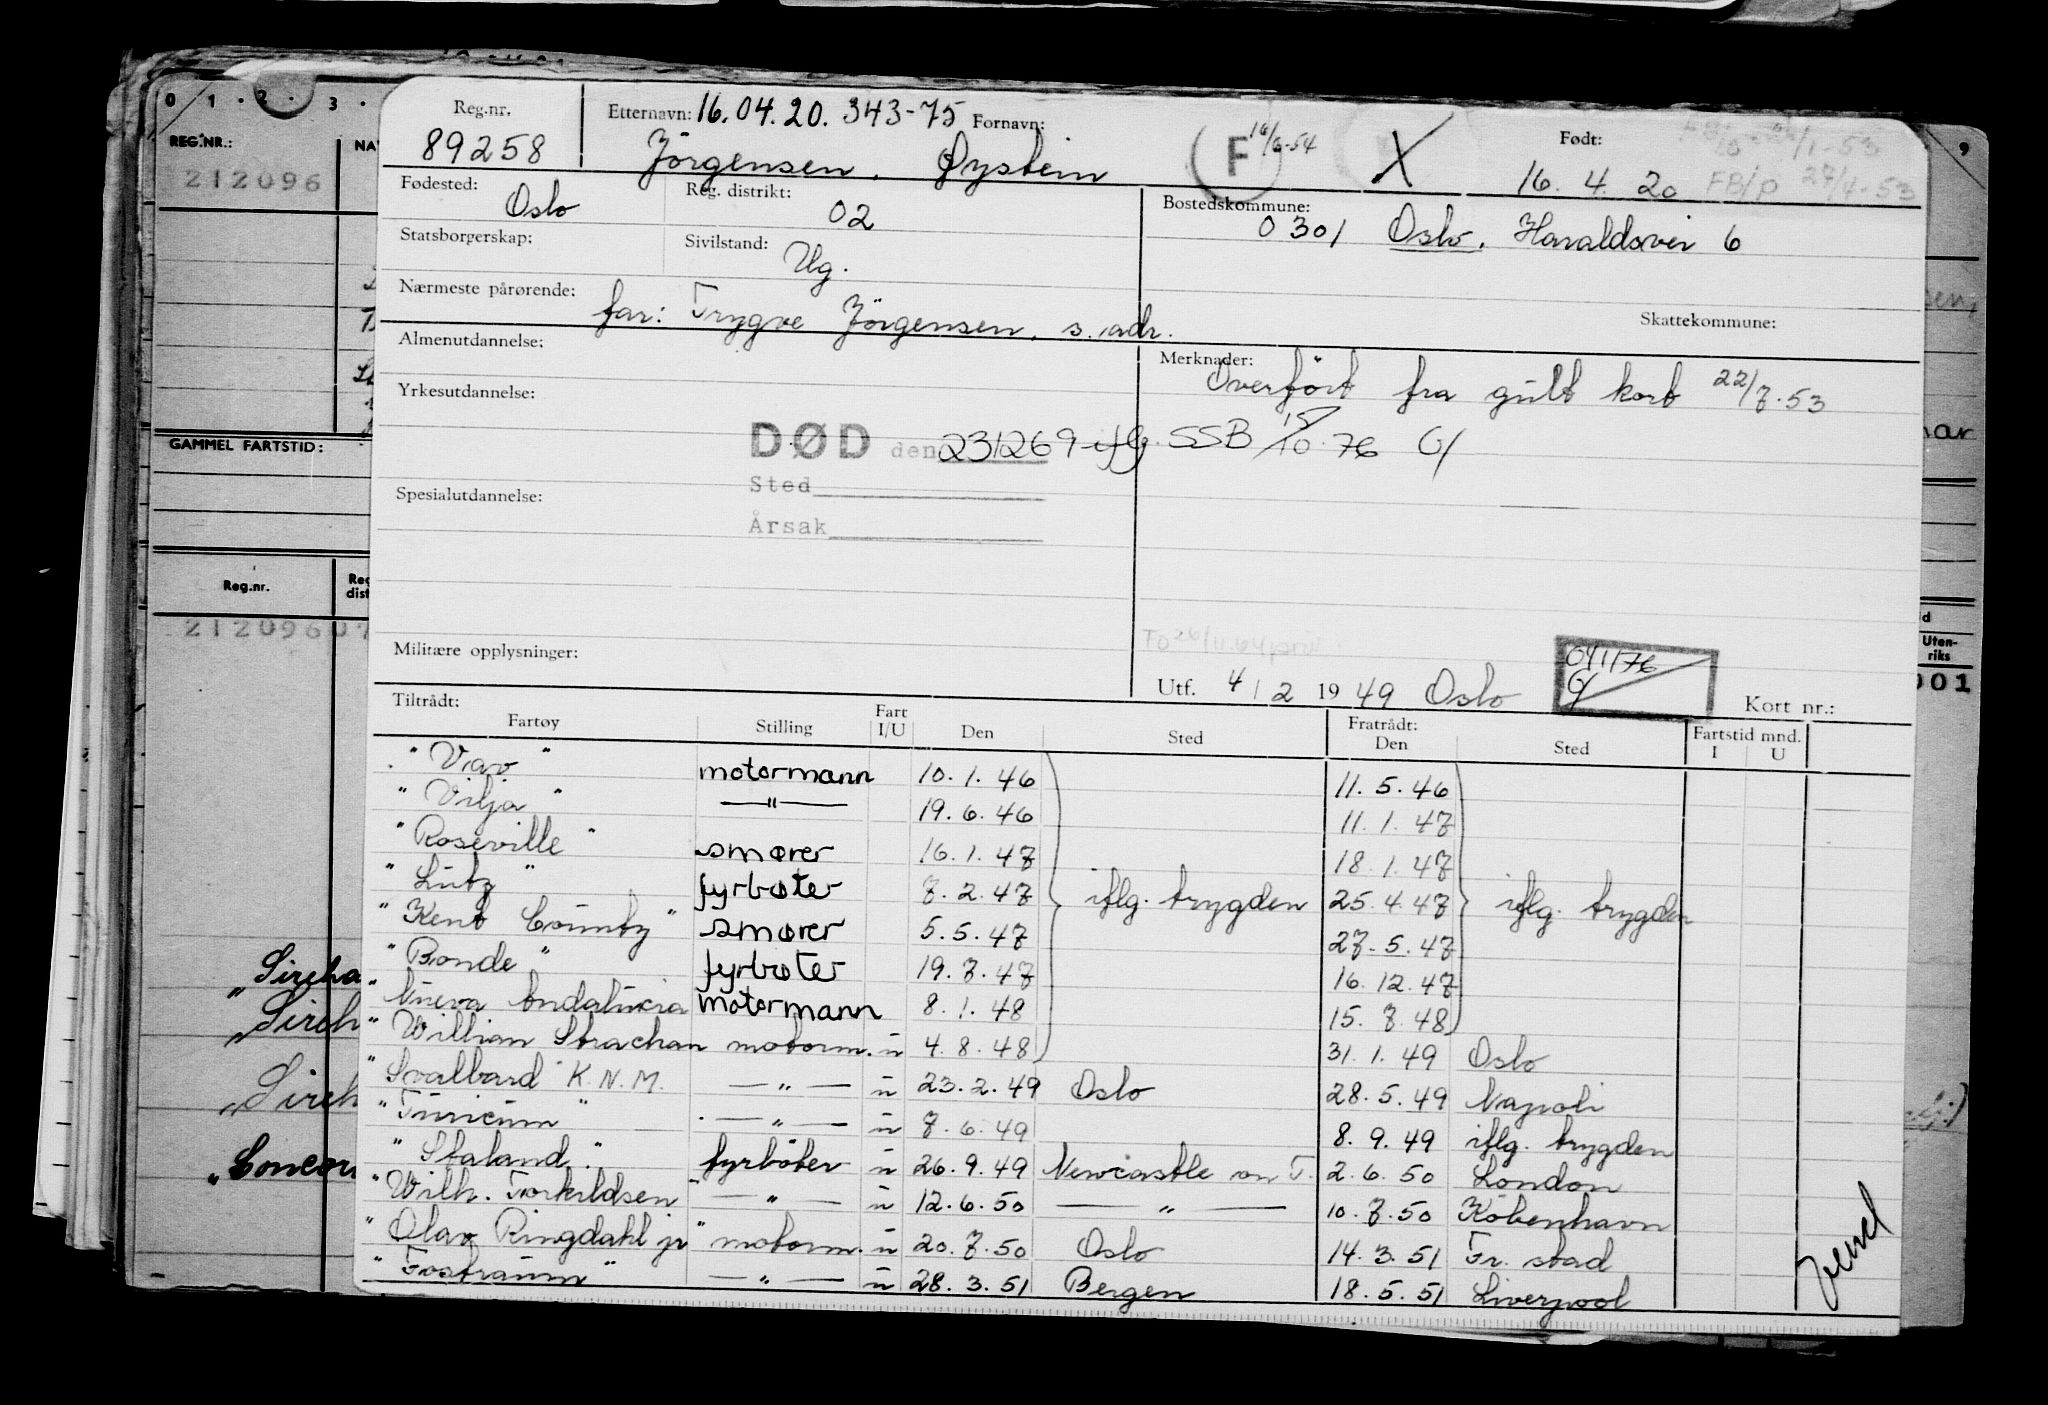 0 1 . 2 . 3 .
REG.NR.:
NA
212096
GAMMEL FARTSTID:
Reg.nr.
Reg dist
21209607
„Sircha
„Sirch
„Sirch
„Concor
Reg.nr.
89258
Etternavn: 16.04.20. 343-75 Fornavn:
Jörgensen, Øystein
F 16/6-54
X
Født:
16. 4. 20
FB/p 27/4-53
9
Fødested: Oslo
Reg. distrikt: 02
Bostedskommune:
0301 Oslo, Haraldsvei 6
Statsborgerskap:
Sivilstand: Ug.
Nærmeste pårørende: far: Trygve Jörgensen, s. adr.
Skattekommune:
Almenutdannelse:
Merknader:
Overført fra gult kort 22/7.53
Yrkesutdannelse:
DØD den 231269 iflg. SSB 15/10.76 G/
Sted
Spesialutdannelse:
Årsak
Militære opplysninger:
041176
G/
Utf. 4/2 1949 Oslo
Kort nr.:
Uten-
riks
001
Tiltrådt:
Fartøy Stilling Fart I/U Den Sted Fratrådt: Den Sted Fartstid mnd. I U
"Vav" motormann 10.1.46 11.5.46
"Vilja" —"— 19.6.46 11.1.47
"Roseville" smører 16.1.47 18.1.47
"Lutz" fyrbøter 7.2.47 iflg. trygden 25.4.47 iflg. trygden
"Kent County" smører 5.5.47 27.5.47
"Bonde" fyrbøter 19.7.47 16.12.47
"Nueva Andalucia motormann 8.1.48 15.7.48
"Willian Strachan motorm. u 4.8.48 31.1.49 Oslo
"Svalbard" K.N.M. —"— u 23.2.49 Oslo 28.5.49 Napoli
"Turicum" —"— u 7.6.49 8.9.49 iflg. trygden
"Staland" fyrböter u 26.9.49 Newcastle on T. 2.6.50 London
"Wilh. Torkildsen" —"— u 12.6.50 —"— 10.7.50 Köbenhavn
"Olav Ringdahl jr" motorm. u 20.7.50 Oslo 14.3.51 Fr.stad
"Fostraum" —"— u 28.3.51 Bergen 18.5.51 Liverpool